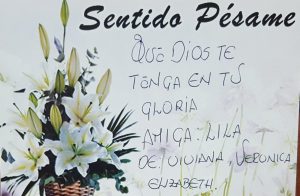 Sentido Pésame
QUE DIOS TE
TENGA EN TÚ
GLORIA
AMIGA: LILA
DE VIVIANA, VERONICA
ELIZABETH.